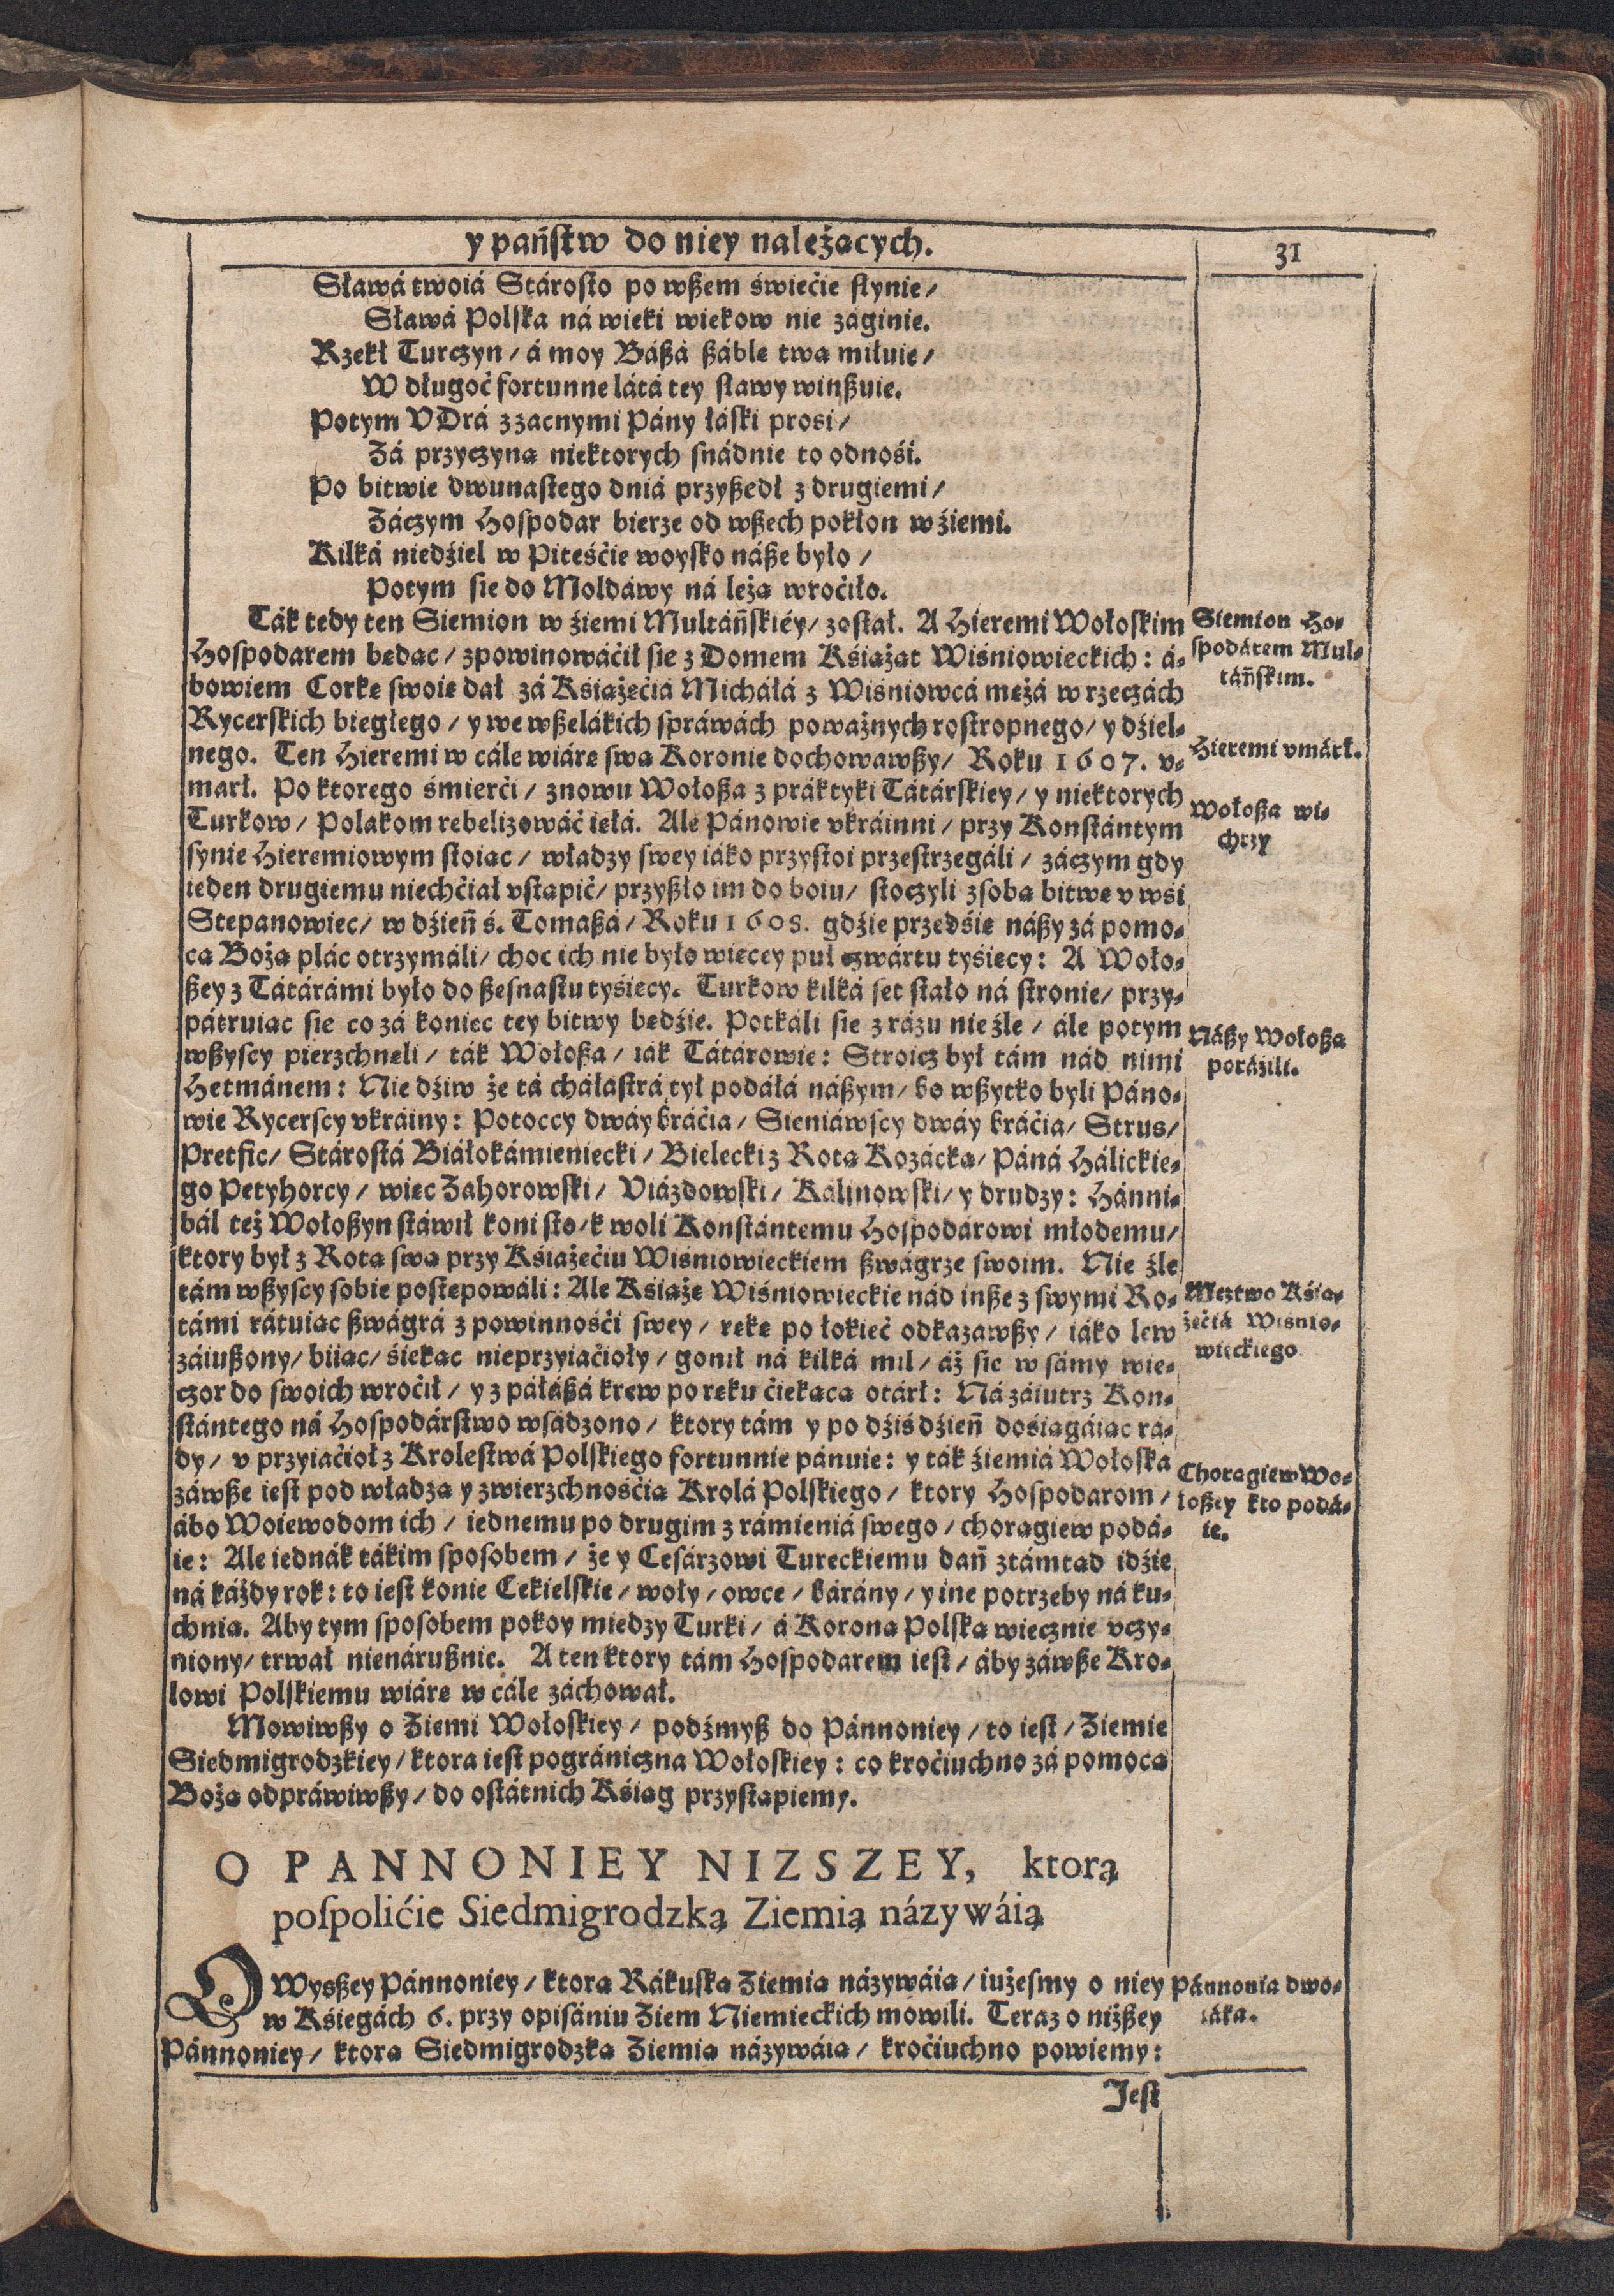 y pań́stw do niey należących.
31
Sławá twoiá Stárosto po wßem świećie słynie /
Sławá Polska ná wieki wiekow nie záginie.
Rzekł Turczyn / á moy Báßá ßáblę twą miłuie /
W długoć fortunne látá tey sławy winßuie.
Potym VDrá z zacnymi Pány łáski prosi /
Zá przyczyną niektorych snádnie to odnośi.
Po bitwie dwunastego dniá przyßedł z drugiemi /
Záczym Hospodar bierze od wßech pokłon w źiemi.
Kilká niedźiel w Piteśćie woysko náße było /
Potym się do Moldáwy ná leżą wroćiło.
Ták tedy ten Siemion w źiemi Multáńskiéy / został. A Hieremi Wołoskim
Hospodarem będąc / zpowinowáćił się z Domem Kśiążąt Wiśniowieckich: á-
bowiem Corkę swoię dał zá Kśiążęćiá Micháłá z Wiśniowcá mężá w rzeczách
Rycerskich biegłego / y we wßelákich spráwách poważnych rostropnego / y dźiel-
nego. Ten Hieremi w cále wiárę swą Koronie dochowawßy / Roku 1607. v-
marł. Po ktorego śmierći / znowu Wołoßá z práktyki Tátárskiey / y niektorych
Turkow / Polakom rebelizowáć ięłá. Ale Pánowie vkráinni / przy Konstántym
synie Hieremiowym stoiąc / władzy swey iáko przystoi przestrzegáli / záczym gdy
ieden drugiemu niechćiał vstąpić / przyßło im do boiu / stoczyli z sobą bitwę v wśi
Stepanowiec / w dźień ś. Tomaßá / Roku 1608. gdźie przedśię náßy zá pomo-
cą Bożą plác otrzymáli / choc ich nie było więcey puł czwártu tyśięcy: A Woło-
ßey z Tátárámi było do ßesnastu tyśięcy. Turkow kilká set stało ná stronie / przy-
pátruiąc się co zá koniec tey bitwy będźie. Potkáli się z rázu nieźle / ále potym
wßyscy pierzchnęli / ták Wołoßá / iák Tátárowie: Stroicz był tám nád nimi
Hetmánem: Nie dźiw że tá cháłastrá tył podáłá náßym / bo wßytko byli Páno-
wie Rycerscy vkráiny: Potoccy dwáy bráćia / Sieniáwscy dwáy bráćia / Strus /
Pretfic / Stárostá Biáłokámieniecki / Bielecki z Rotą Kozácką / Páná Hálickie-
go Petyhorcy / więc Zahorowski / Viázdowski / Kálinowski / y drudzy: Hánni-
bál też Wołoßyn stáwił koni sto / k woli Konstántemu Hospodárowi młodemu /
ktory był z Rotą swą przy Kśiążęćiu Wiśniowieckiem ßwágrze swoim. Nie źle
tám wßyscy sobie postępowáli: Ale Kśiążę Wiśniowieckie nád inße z swymi Ro-
támi rátuiąc ßwágrá z powinnośći swey / rękę po łokieć odkazawßy / iáko lew
záiußony / biiąc / śiekąc nieprzyiaćioły / gonił ná kilká mil / áż się w sámy wie-
czor do swoich wroćił / y z páłáßá krew po ręku ćiekącą otárł: Ná záiutrz Kon-
stántego ná Hospodárstwo wsádzono / ktory tám y po dźiś dźień dosiągáiąc rá-
dy / v przyiaćioł z Krolestwá Polskiego fortunnie pánuie: y ták źiemiá Wołoska
záwße iest pod władzą y zwierzchnośćią Krolá Polskiego / ktory Hospodarom /
ábo Woiewodom ich / iednemu po drugim z rámieniá swego / chorągiew podá-
ie: Ale iednák tákim sposobem / że y Cesárzowi Tureckiemu dań ztámtąd idźie
ná káżdy rok: to iest konie Cekielskie / woły / owce / bárány / y ine potrzeby ná ku-
chnią. Aby tym sposobem pokoy miedzy Turki / á Koroną Polską wiecznie vczy-
niony / trwał nienárußnie. A ten ktory tám Hospodarem iest / áby záwße Kro-
lowi Polskiemu wiárę w cále záchował.
Mowiwßy o Ziemi Wołoskiey / podźmyß do Pánnoniey / to iest / Ziemie
Siedmigrodzkiey / ktora iest pográniczna Wołoskiey: co kroćiuchno zá pomocą
Bożą odpráwiwßy / do ostátnich Kśiąg przystąpiemy.
O PANNONIEY NIZSZEY, ktorą
pospolićie Siedmigrodzką Ziemią názywáią
O Wyßßey Pánnoniey / ktorą Rákuską Ziemią názywáią / iużesmy o niey
w Kśięgách 6. przy opisániu Ziem Niemieckich mowili. Teraz o niżßey
Pánnoniey / ktorą Siedmigrodzką Ziemią názywáią / kroćiuchno powiemy:
Jest
Siemion Ho-
spodárem Mul-
táńskim.
Hieremi vmárł.
Wołoßá wi-
chrzy
Náßy Wołoßá
poráźili.
Męztwo Kśią-
żęćiá Wisnio-
wieckiego
Chorągiew Wo-
łoßey kto podá-
ie.
Pánnonia dwo-
iáka.